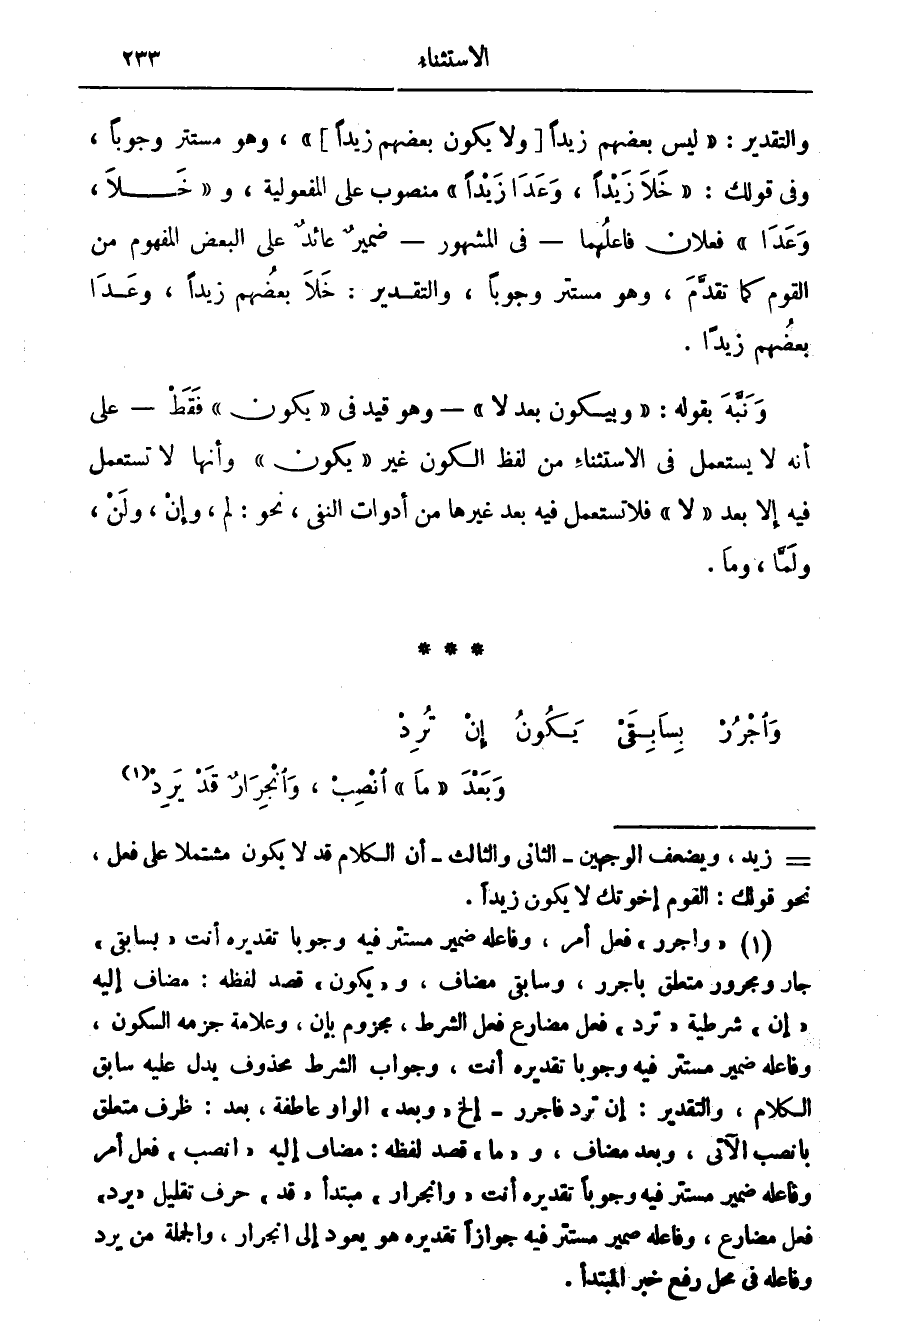 الاستثناء ٢٣٣
والتقدير : « ليس بعضهم زيداً [ ولا يكون بعضهم زيداً ] » ، وهو مستتر وجوباً ،
وفى قولك : « خَلاَ زَيْداً ، وَعَدَا زَيْداً » منصوب على المفعولية ، و « خَلاَ ،
وَعَدَا » فعلان فاعلُهما — فى المشهور — ضميرٌ عائدٌ على البعض المفهوم من
القوم كما تقدَّمَ ، وهو مستتر وجوباً ، والتقدير : خَلاَ بعضُهم زيداً ، وعَدَا
بعضُهم زيدًا .
وَنَبَّهَ بقوله : « وبيكون بعد لا » — وهو قيد فى « يكون » فَقَطْ — على
أنه لا يستعمل فى الاستثناء من لفظ الكون غير « يكون » وأنها لا تستعمل
فيه إلا بعد « لا » فلا تستعمل فيه بعد غيرها من أدوات النفى ، نحو : لم ، وإنْ ، ولَنْ ،
ولَمَّا ، وما .
* * *
وَاُجْرُرْ بِسَابِقَىْ يَكُونُ إِنْ تُرِدْ
وَبَعْدَ « مَا » اُنْصِبْ ، وَاُنْجِرَارٌ قَدْ يَرِدْ(١)
= زيد ، ويضعف الوجهين ـ الثانى والثالث ـ أن الكلام قد لا يكون مشتملا على فعل ،
نحو قولك : القوم إخوتك لا يكون زيداً .
(١) « واجرر » فعل أمر ، وفاعله ضمير مستتر فيه وجوبا تقديره أنت « بسابقى »
جار ومجرور متعلق باجرر ، وسابقى مضاف ، و « يكون » قصد لفظه : مضاف إليه
« إن » شرطية « ترد » فعل مضارع فعل الشرط ، مجزوم بإن ، وعلامة جزمه السكون ،
وفاعله ضمير مستتر فيه وجوبا تقديره أنت ، وجواب الشرط محذوف يدل عليه سابق
الكلام ، والتقدير : إن ترد فاجرر ـ إلخ « وبعد » الواو عاطفة ، بعد : ظرف متعلق
بانصب الآتى ، وبعد مضاف ، و « ما » قصد لفظه : مضاف إليه « انصب » فعل أمر
وفاعله ضمير مستتر فيه وجوباً تقديره أنت « وانجرار » مبتدأ « قد » حرف تقليل « يرد »
فعل مضارع ، وفاعله ضمير مستتر فيه جوازاً تقديره هو يعود إلى انجرار ، والجملة من يرد
وفاعله فى محل رفع خبر المبتدأ .